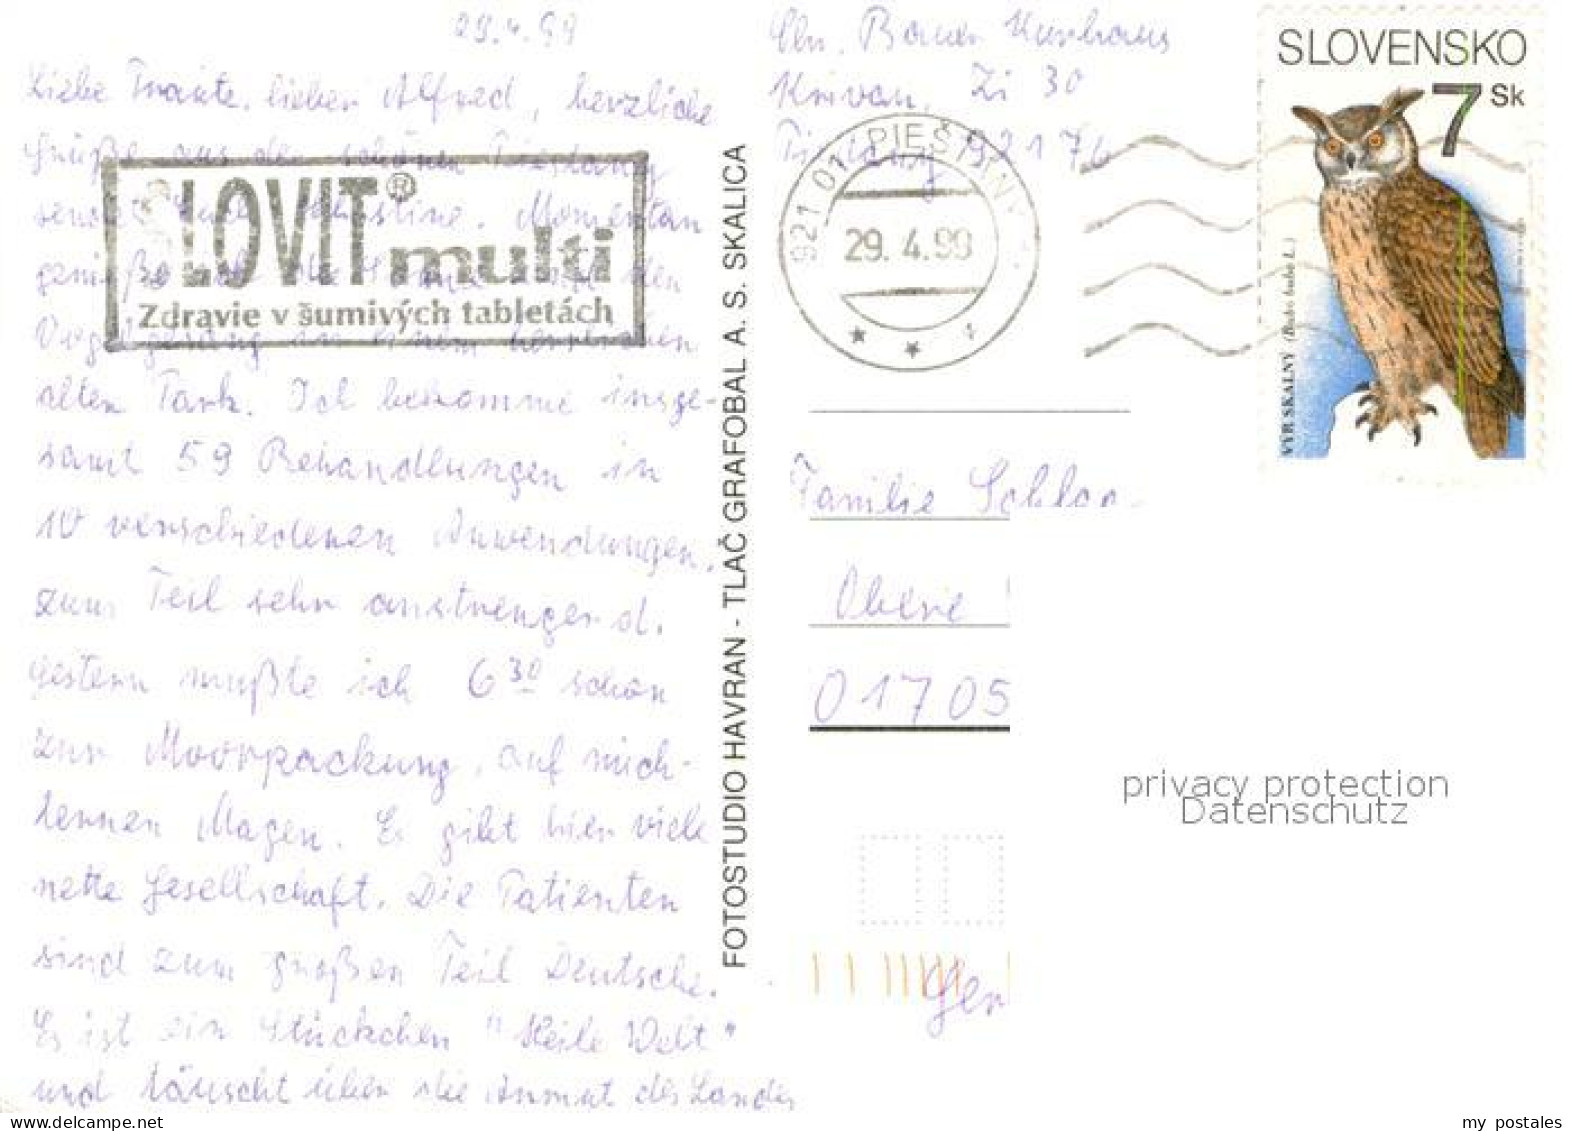 29.4.99
Liebe Traute, lieber Alfred, herzliche
Grüße aus dem schönen Piestany
sendet Christine. Momentan
genieße ich die Sonne und den
Vogelgesang in einem herrlichen
alten Park. Ich bekomme insge-
samt 59 Behandlungen in
10 verschiedenen Anwendungen,
zum Teil sehr anstrengend.
Gestern mußte ich 6 30 schon
zur Moorpackung, auf nüch-
ternen Magen. Es gibt hier viele
nette Gesellschaft. Die Patienten
sind zum großen Teil Deutsche.
Es ist ein Stückchen "Heile Welt"
und täuscht über die Armut des Landes
SLOVIT® multi
Zdravie v šumivých tabletách
FOTOSTUDIO HAVRAN - TLAČ GRAFOBAL A. S. SKALICA
Chr. Bauer Kurhaus
Krivan, Zi 30
Piestany 92176
921 01 PIEŠŤANY 1
29. 4.99
SLOVENSKO
7 Sk
VÝR SKALNÝ (Bubo bubo L.)
Familie
Obere
01705
Ger
privacy protection
Datenschutz
my_postales